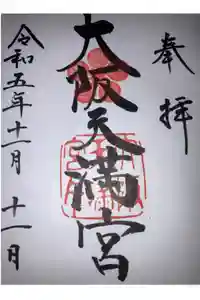 奉拝
大阪天満宮
令和五年十一月十一日